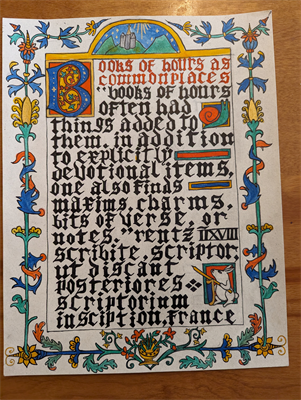 Books of hours as
commonplaces
"books of hours
often had
things added to
them. in addition
to explicitly
devotional items,
one also finds
maxims, charms,
bits of verse, or
notes." rentz IIXVIII
scribite, scriptor
ut discant
posteriores
scriptorium
insciption, france